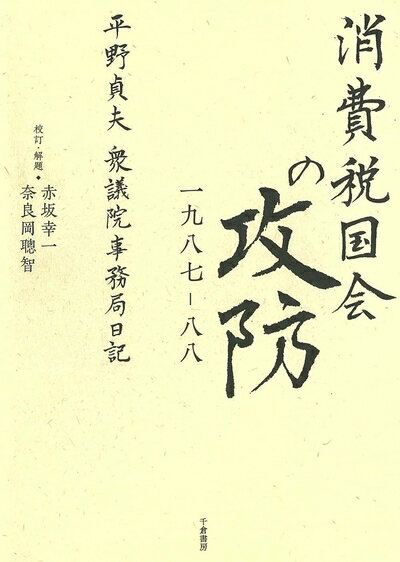 消費税国会
の
攻防
一九八七－八八
平野貞夫 衆議院事務局日記
校訂・解題◆
赤坂幸一
奈良岡聰智
千倉書房